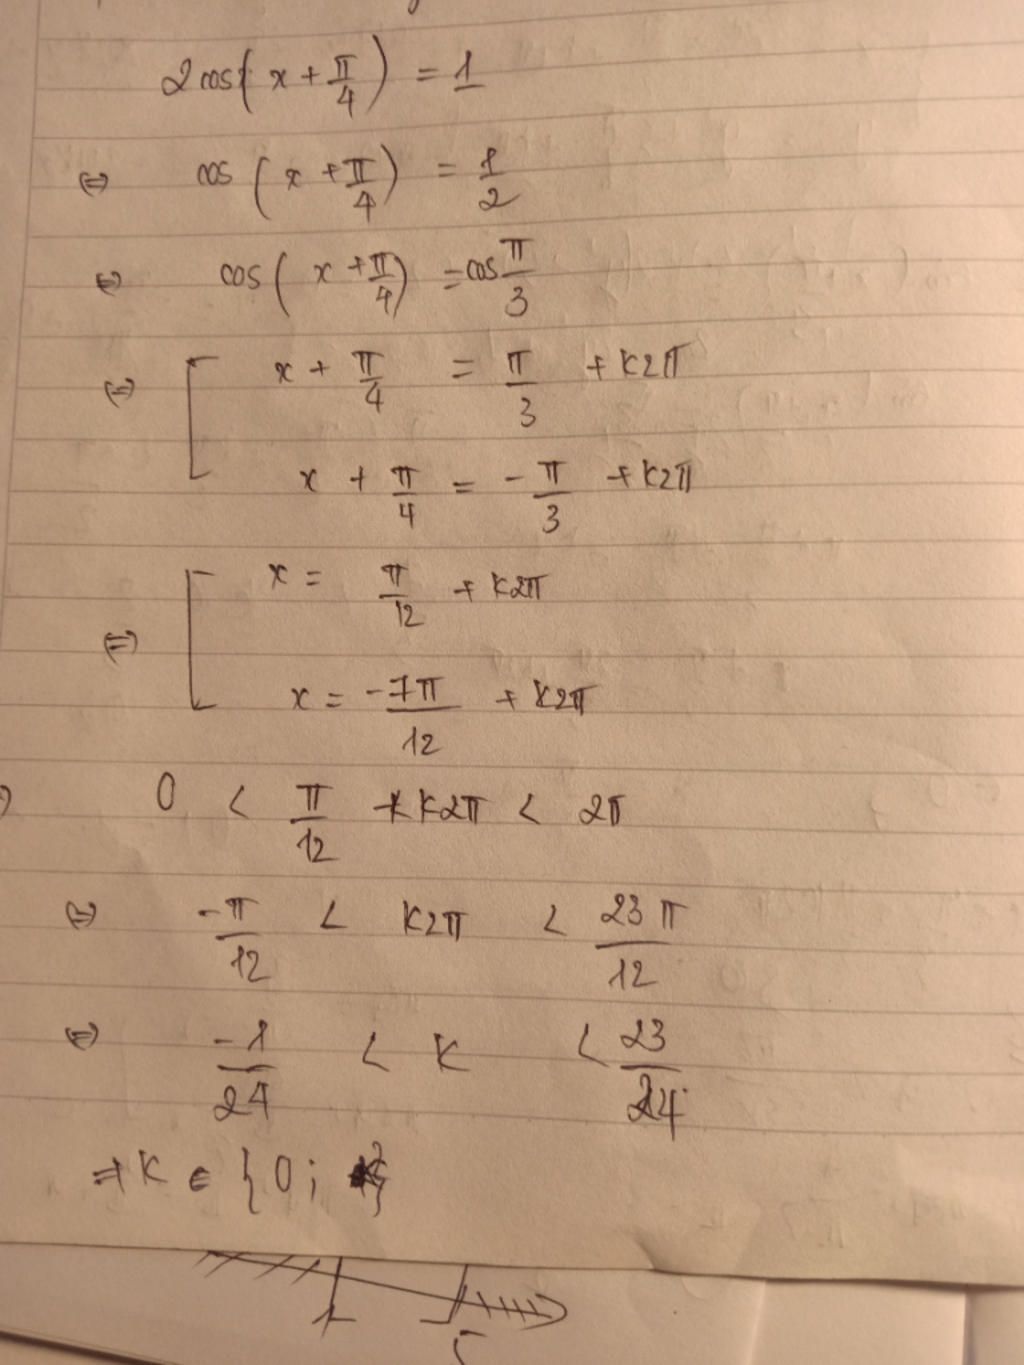 2cos(x + π/4) = 1
⇔ cos(x + π/4) = 1/2
⇔ cos(x + π/4) = cos π/3
⇔ [ x + π/4 = π/3 + k2π
x + π/4 = -π/3 + k2π
⇔ [ x = π/12 + k2π
x = -7π/12 + k2π
0 < π/12 + k2π < 2π
⇔ -π/12 < k2π < 23π/12
⇔ -1/24 < k < 23/24
⇒ k ∈ {0; }